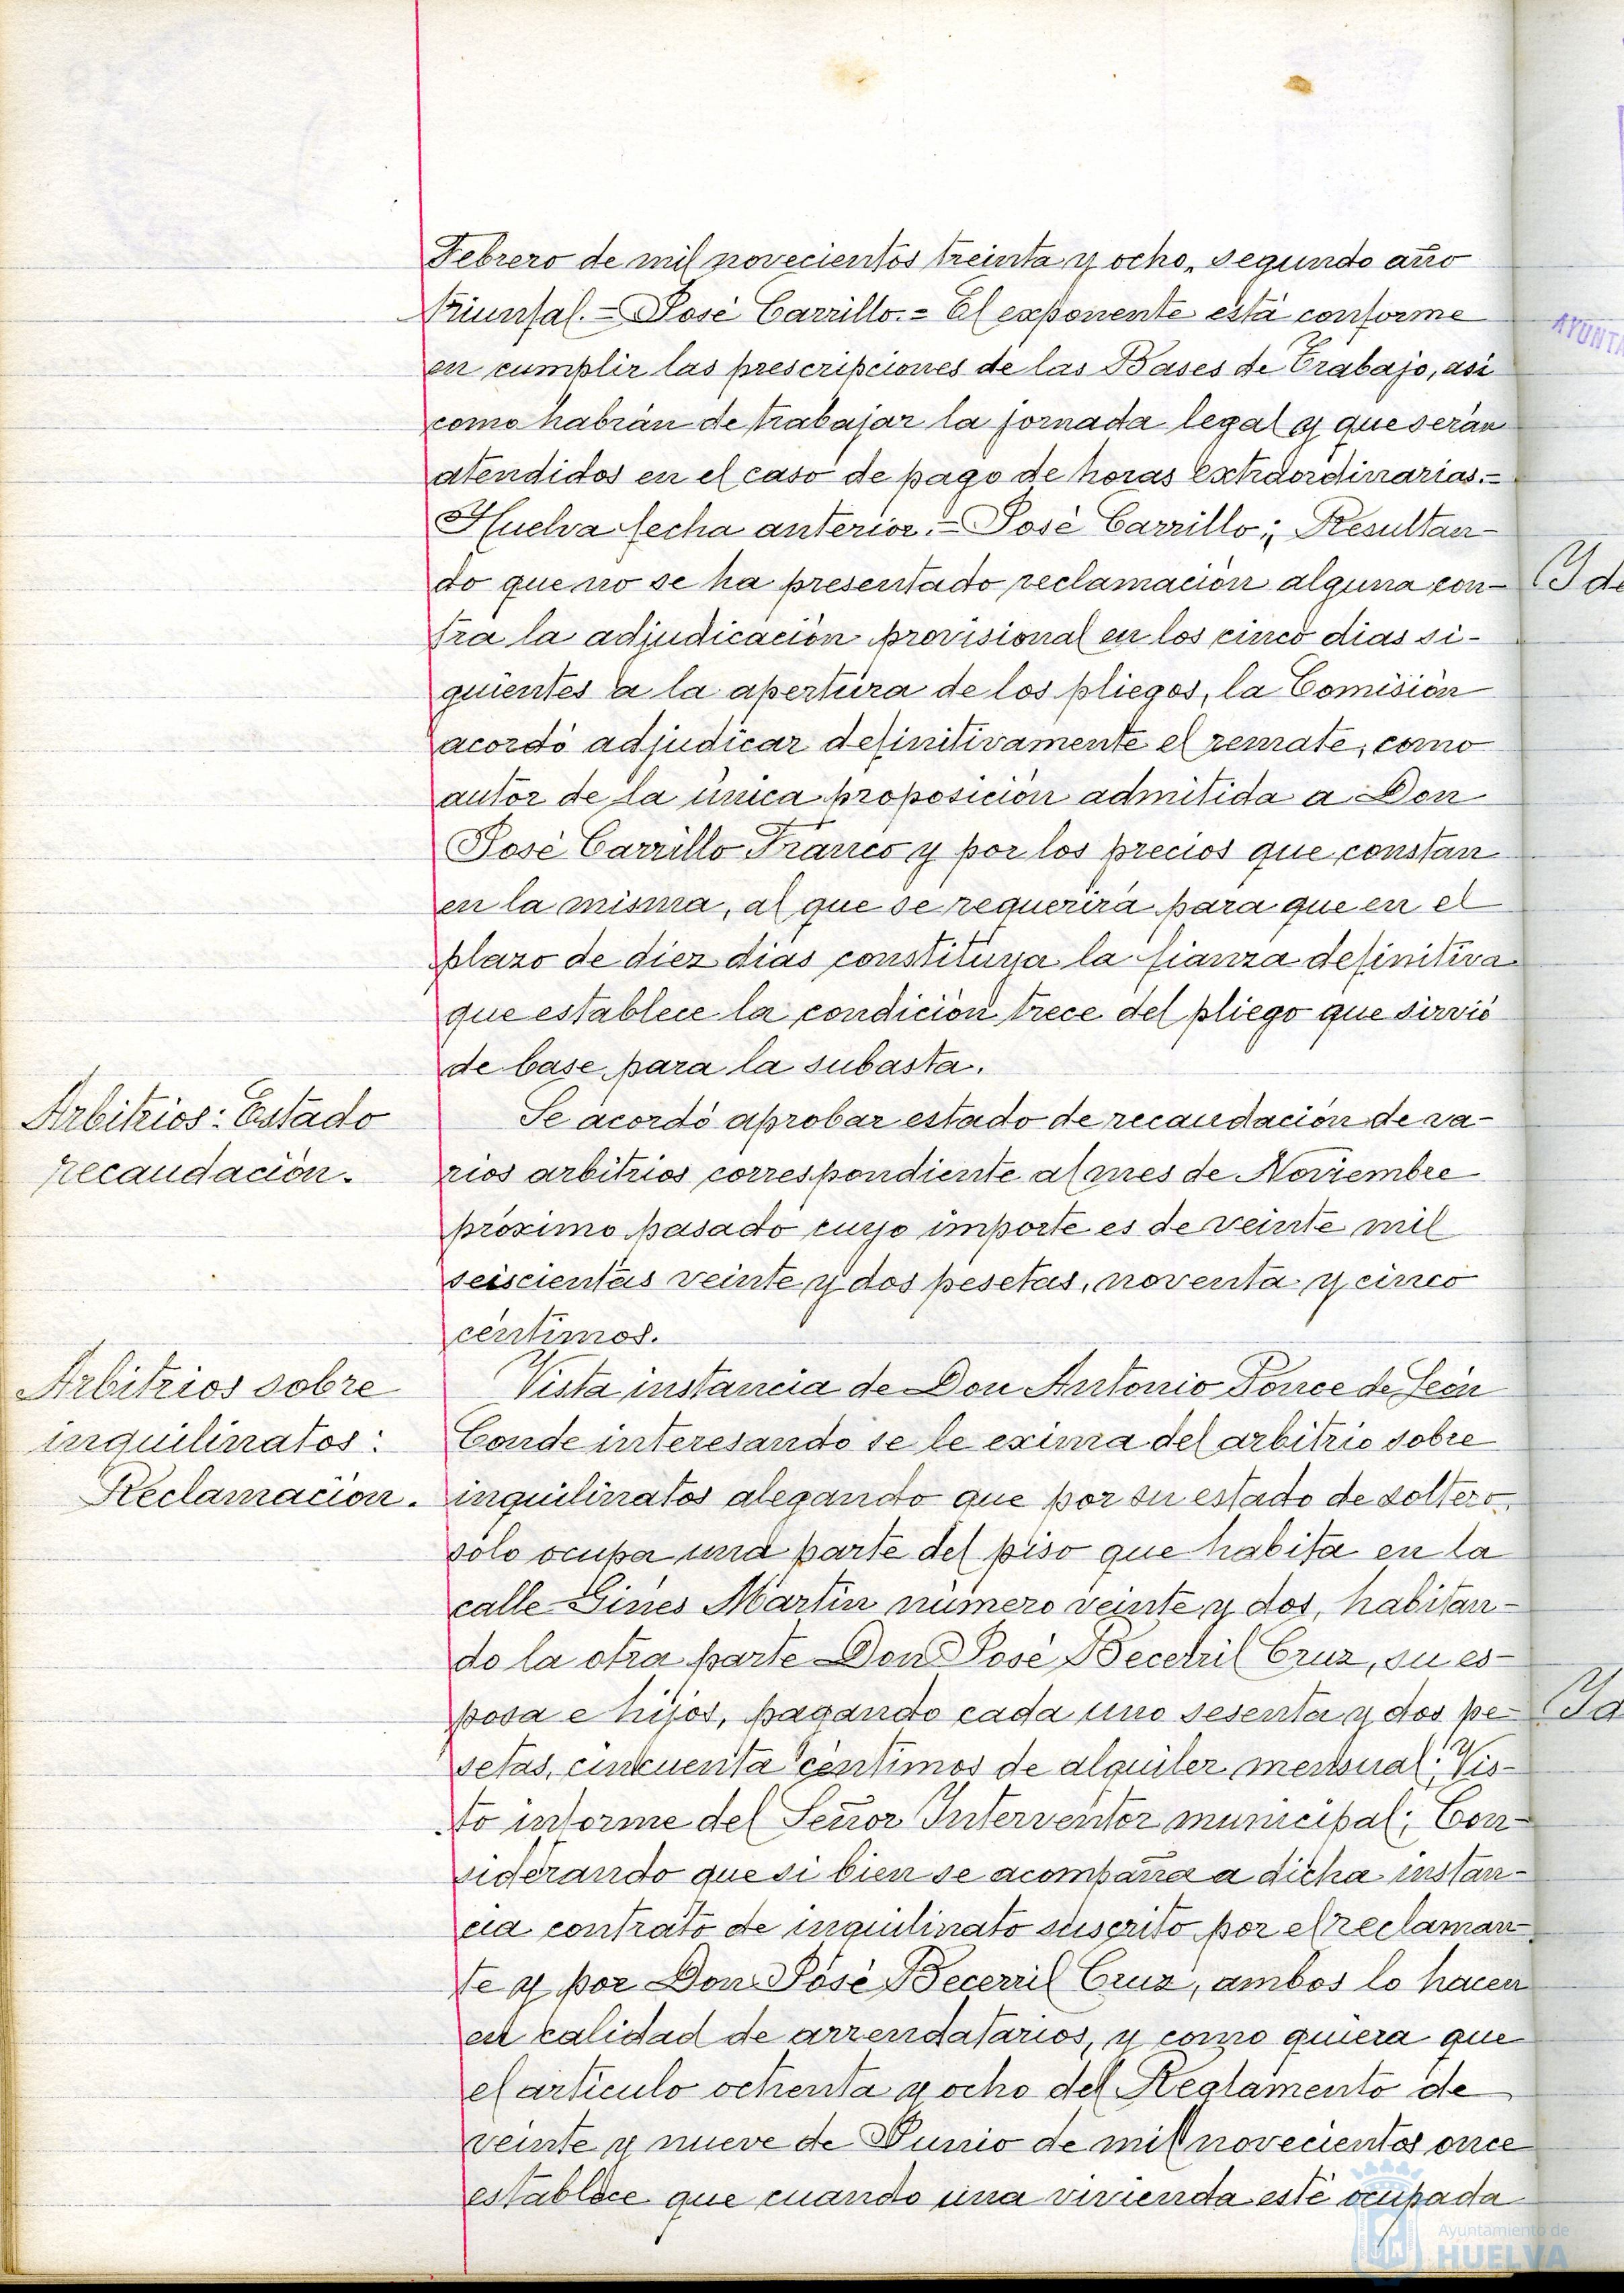 Febrero de mil novecientos treinta y ocho, segundo año
triunfal.= José Carrillo.= El exponente está conforme
en cumplir las prescripciones de las Bases de Trabajo, asi
como habrán de trabajar la jornada legal y que serán
atendidos en el caso de pago de horas extraordinarias.=
Huelva fecha anterior.= José Carrillo; Resultan-
do que no se ha presentado reclamación alguna con-
tra la adjudicación provisional en los cinco dias si-
guientes a la apertura de los pliegos, la Comisión
acordó adjudicar definitivamente el remate, como
autor de la única proposición admitida a Don
José Carrillo Franco y por los precios que constan
en la misma, al que se requerirá para que en el
plazo de diez dias constituya la fianza definitiva
que establece la condición trece del pliego que sirvió
de base para la subasta.
Arbitrios: Estado
recaudación.
Se acordó aprobar estado de recaudación de va-
rios arbitrios correspondiente al mes de Noviembre
próximo pasado cuyo importe es de veinte mil
seiscientas veinte y dos pesetas, noventa y cinco
céntimos.
Arbitrios sobre
inquilinatos:
Reclamación.
Vista instancia de Don Antonio Ponce de León
Conde interesando se le exima del arbitrio sobre
inquilinatos alegando que por su estado de soltero,
sólo ocupa una parte del piso que habita en la
calle Ginés Martin número veinte y dos, habitan-
do la otra parte Don José Becerril Cruz, su es-
posa e hijos, pagando cada uno sesenta y dos pe-
setas, cincuenta céntimos de alquiler mensual: Vis-
to informe del Señor Interventor municipal; Con-
siderando que si bien se acompaña a dicha instan-
cia contrato de inquilinato suscrito por el reclaman-
te y por Don José Becerril Cruz, ambos lo hacen
en calidad de arrendatarios, y como quiera que
el articulo ochenta y ocho del Reglamento de
veinte y nueve de Junio de mil novecientos once
establece que cuando una vivienda esté ocupada
Ayuntamiento de
HUELVA